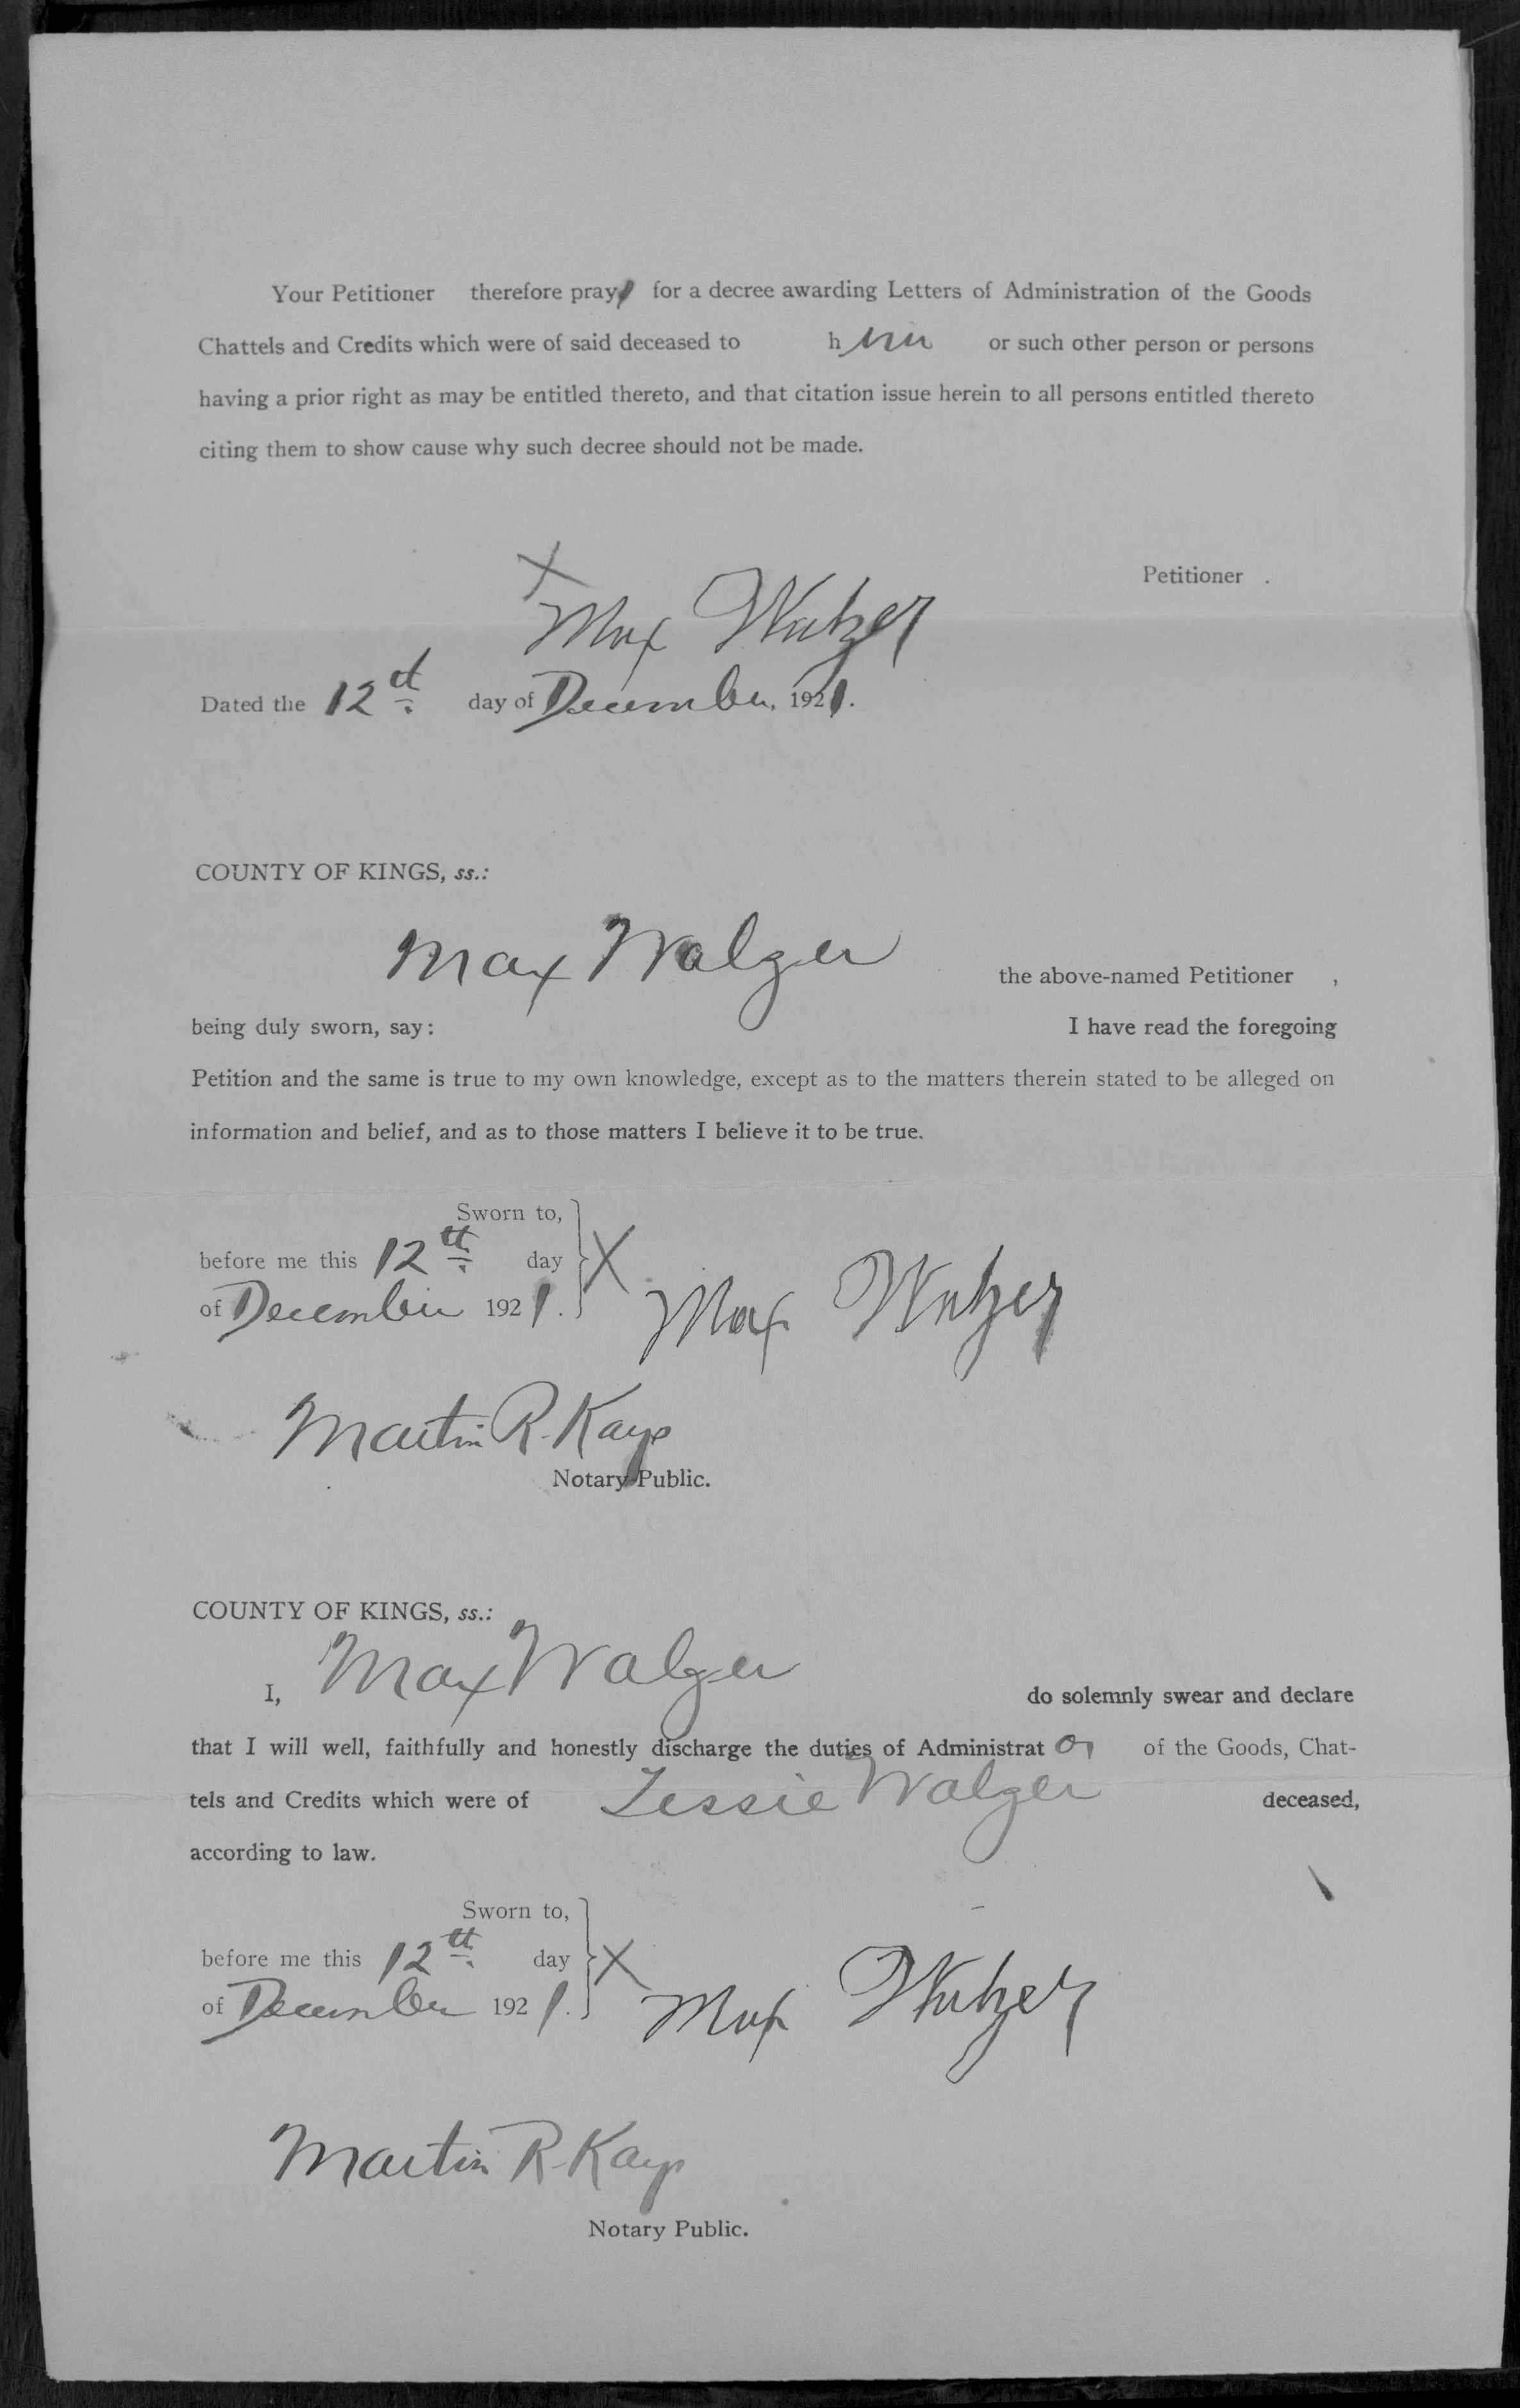 Your Petitioner therefore prays for a decree awarding Letters of Administration of the Goods
Chattels and Credits which were of said deceased to him or such other person or persons
having a prior right as may be entitled thereto, and that citation issue herein to all persons entitled thereto
citing them to show cause why such decree should not be made.
Petitioner .
X Max Walzer
Dated the 12th day of December, 1921.
COUNTY OF KINGS, ss.:
Max Walzer the above-named Petitioner ,
being duly sworn, say: I have read the foregoing
Petition and the same is true to my own knowledge, except as to the matters therein stated to be alleged on
information and belief, and as to those matters I believe it to be true.
Sworn to,
before me this 12th day
of December 1921.
X Max Walzer
Martin R. Kays
Notary Public.
COUNTY OF KINGS, ss.:
I, Max Walzer do solemnly swear and declare
that I will well, faithfully and honestly discharge the duties of Administrator of the Goods, Chat-
tels and Credits which were of Lessie Walzer deceased,
according to law.
Sworn to,
before me this 12th day
of December 1921.
X Max Walzer
Martin R. Kays
Notary Public.